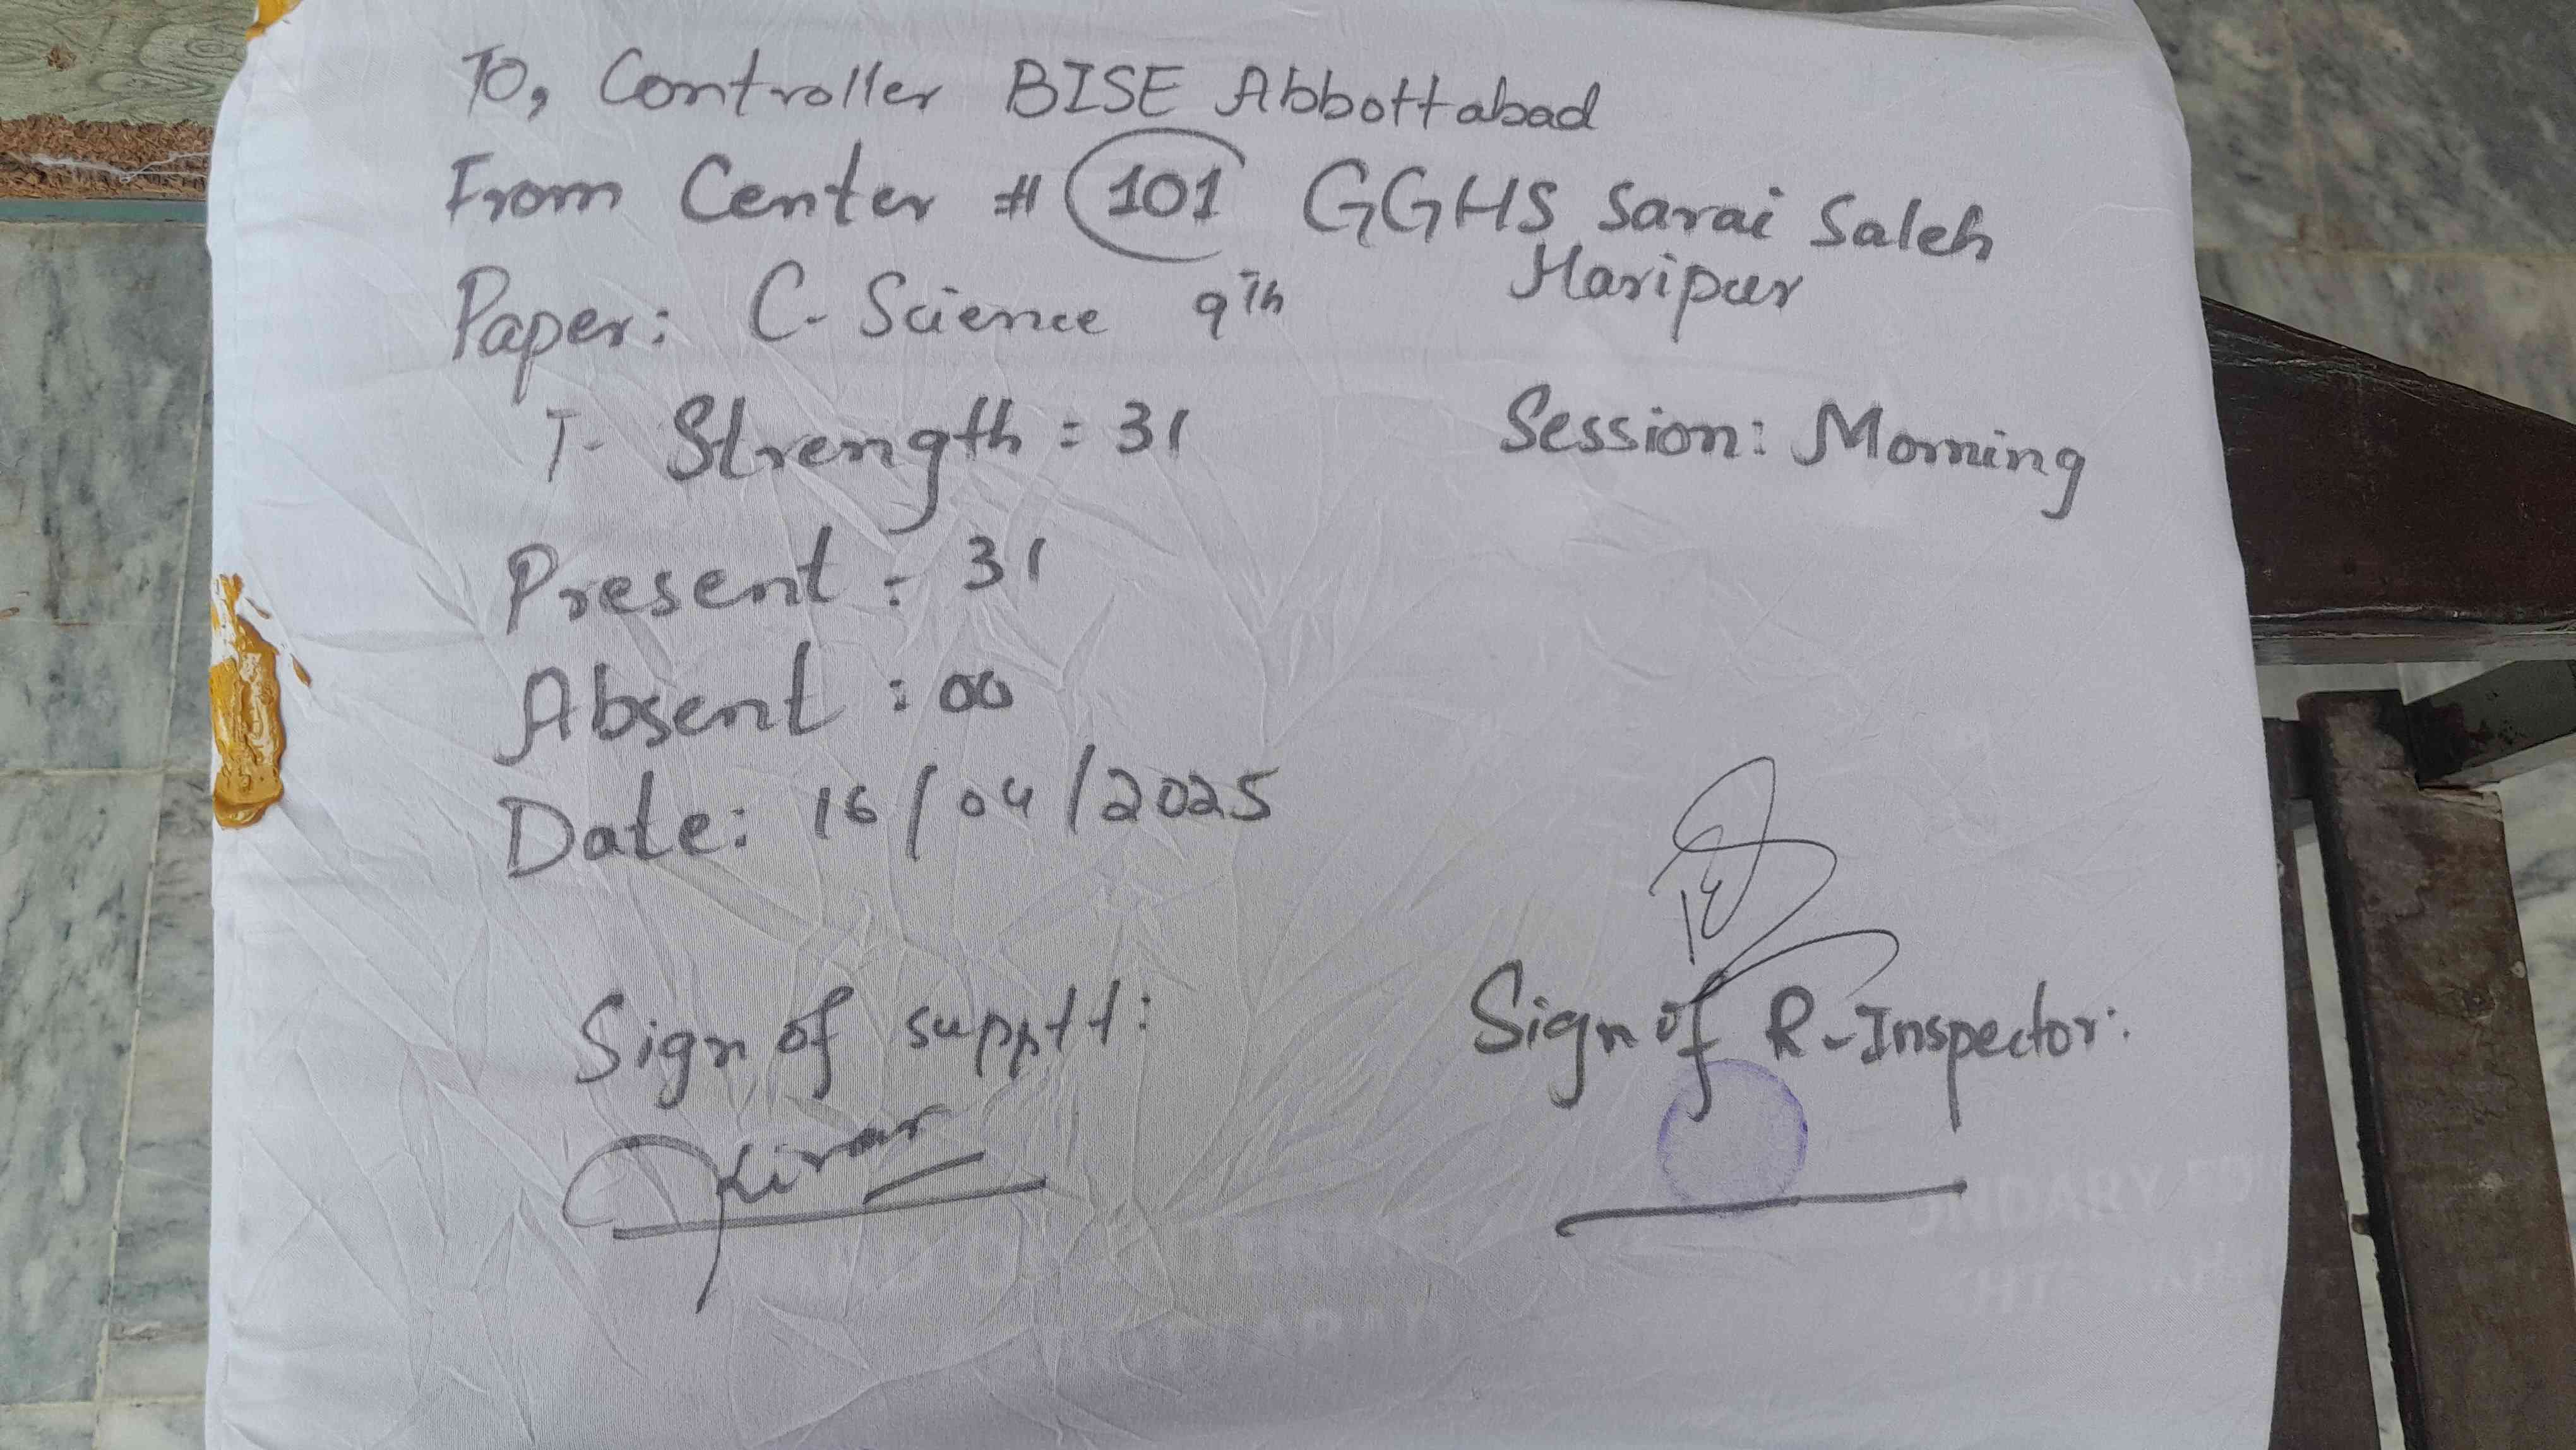 To, Controller BISE Abbottabad
From Center # 101 GGHS Sarai Saleh
Haripur
Paper: C- Science 9th
T- Strength = 31
Session: Morning
Present = 31
Absent : 00
Date: 16/04/2025
Sign of supptt:
Sign of R-Inspector:
Kiran